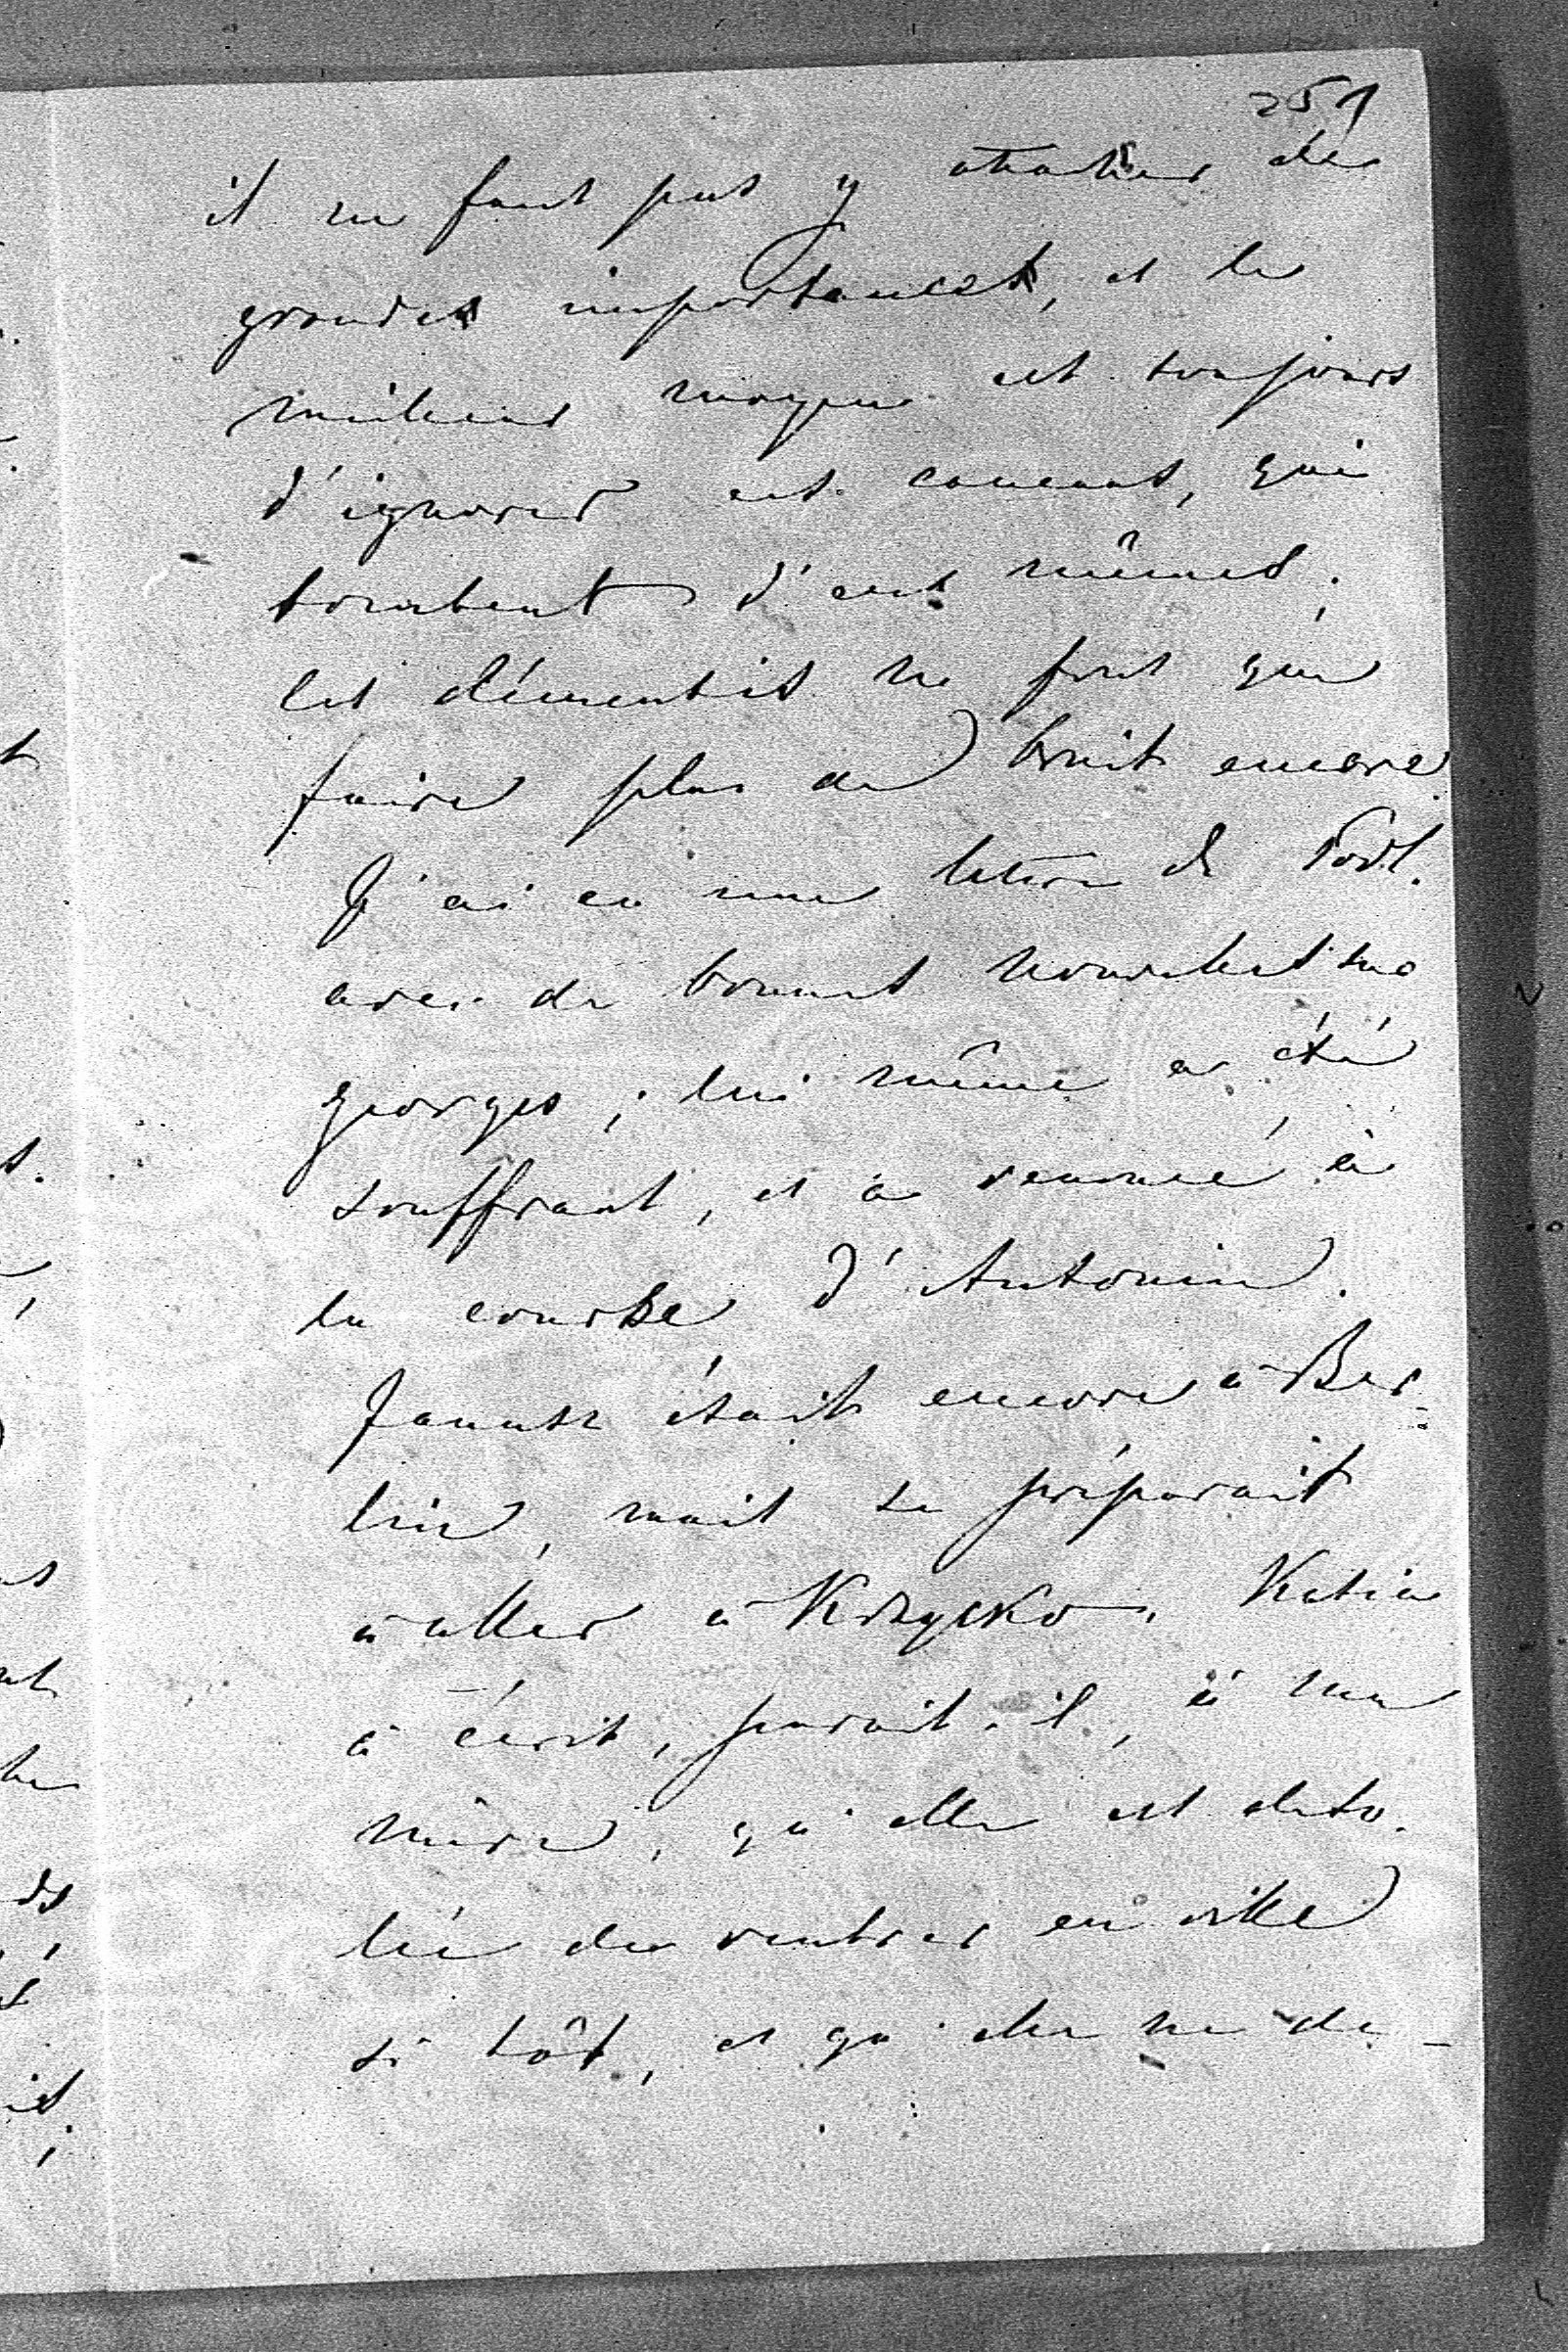 251
il ne faut pas y attacher de
grandes importances, et le
meilleur moyen est toujours
d'ignorer ces cancans, qui
tombent d'eux mêmes;
les démentis ne font que
faire plus de bruit encore.
J'ai eu une lettre de Podl.
avec de bonnes nouvelles sur
Georges; lui même a été
souffrant, et a renoncé à
la course d'Antonin.
Janusz était encore à Ber-
lin, mais se préparait
à aller à Krzycko. Katia
a écrit, parait-il, à sa
mère, qu'elle est déso-
lée de rentrer en ville
si tôt, et qu'elle ne de-